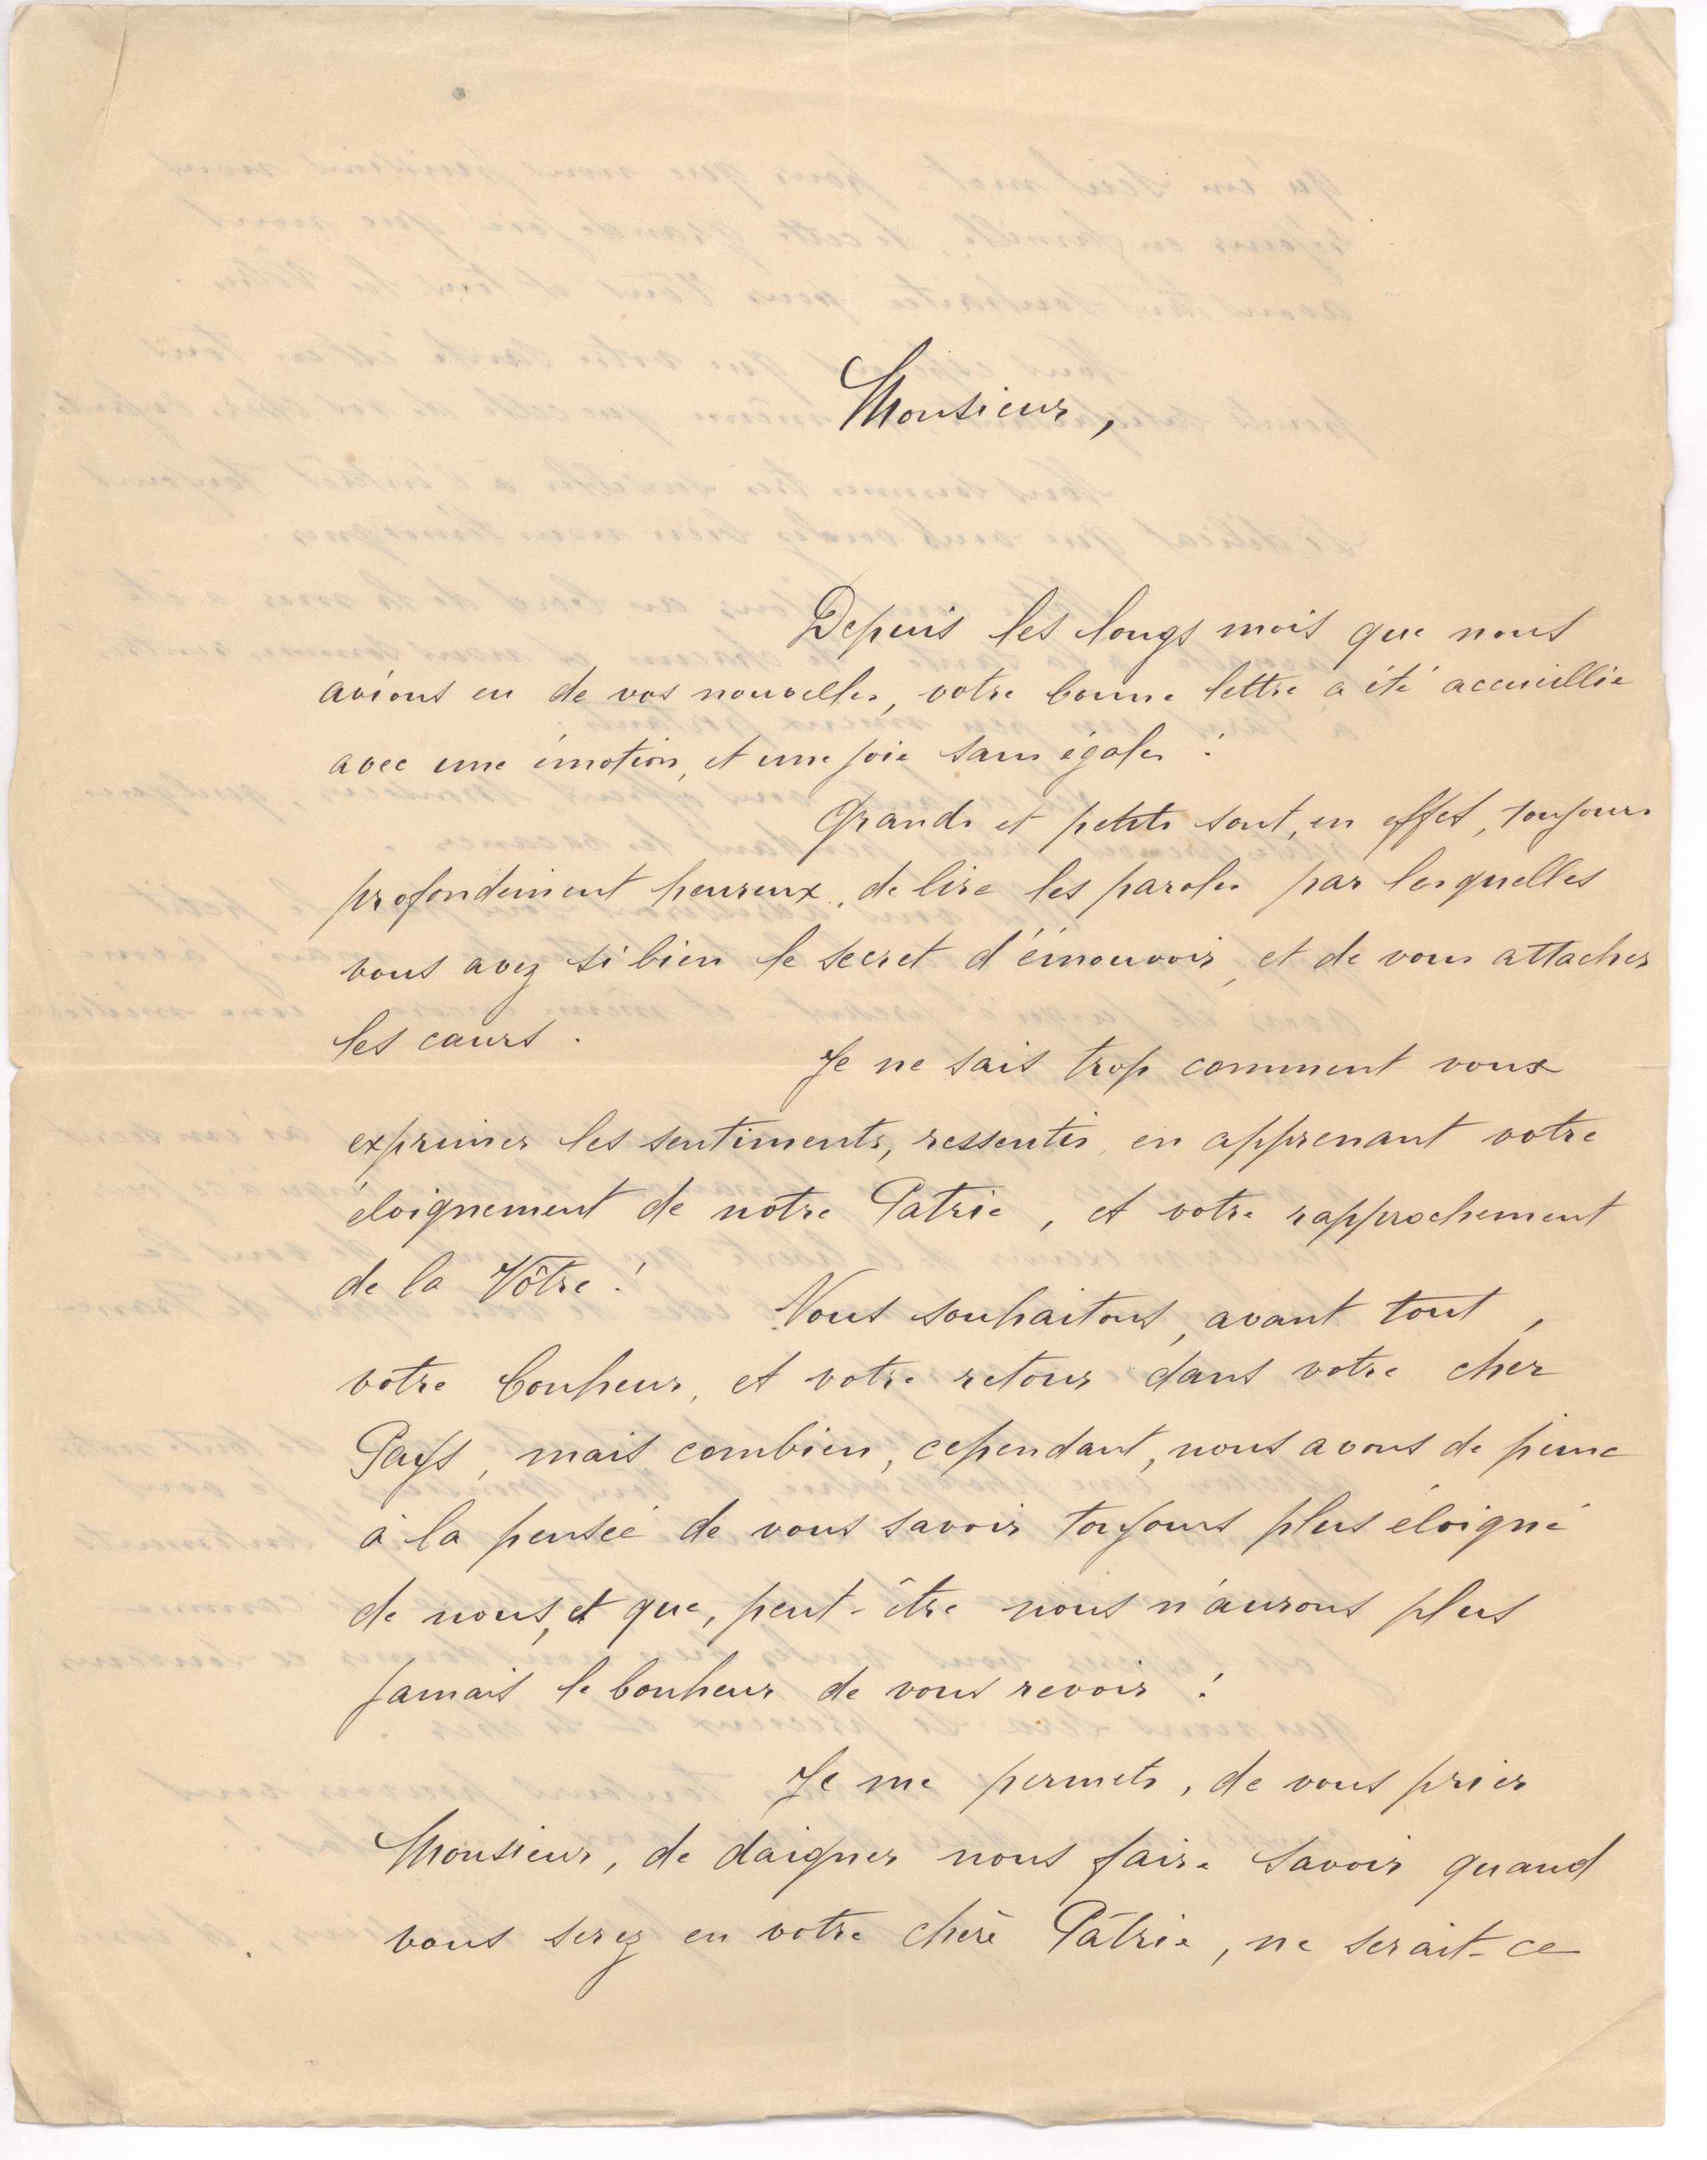 Monsieur,
Depuis les longs mois que nous
avions eu de vos nouvelles, votre bonne lettre a été accueillie
avec une émotion, et une joie sans égales !
Grands et petits sont, en effet, toujours
profondément heureux, de lire les paroles par lesquelles
vous avez si bien le secret d'émouvoir, et de vous attacher
les cœurs.
Je ne sais trop comment vous
exprimer les sentiments, ressentis, en apprenant votre
éloignement de notre Patrie, et votre rapprochement
de la Vôtre !
Nous souhaitons, avant tout,
votre bonheur, et votre retour dans votre cher
Pays, mais combien, cependant, nous avons de peine
à la pensée de vous savoir toujours plus éloigné
de nous, et que, peut-être nous n'aurons plus
jamais le bonheur de vous revoir !
Je me permets, de vous prier
Monsieur, de daigner nous faire savoir quand
vous serez en votre chère Patrie, ne serait-ce